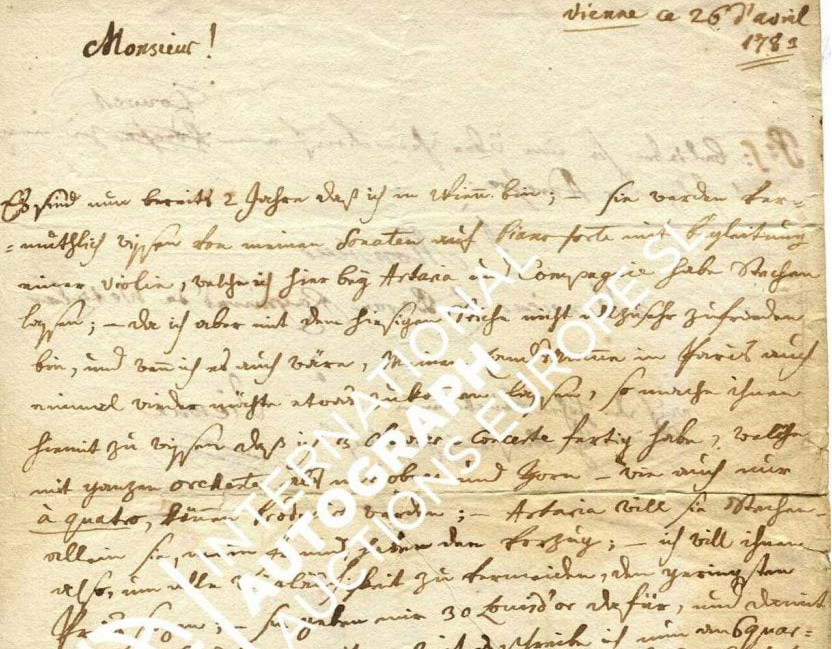 vienne ce 26 d'avril
1783
Monsieur!
Es sind nun bereits 2 Jahre daß ich in Wienn bin; – sie werden ver=
=muthlich wissen von meinen Sonaten auf Piano forte mit begleitung
einer violin, welche ich hier bey Artaria und Compagnie habe Stechen
lassen; – da ich aber mit dem hiesigen Stiche nicht allzusehr zufrieden
bin, und wenn ich es auch wäre, meinem Landsmann in Paris auch
einmal wieder möchte etwas zukommen lassen, so mache ihnen
hiemit zu wissen daß ich 3 Clavier=Concerte fertig habe, welche
mit ganzen orchestre, als mit oboen und Horn – wie auch nur
à quatro, können Producirt werden; – Artaria will sie Stechen.
allein sie, mein freund, haben den Vorzug; – ich will ihnen
also, um alle Weitläufigkeit zu vermeiden, den geringsten
Preis sagen; – sie geben mir 30 Louis d'or dafür, und damit
schreibe ich nun an 6 quar=
INTERNATIONAL
AUTOGRAPH
AUCTIONS EUROPE SL